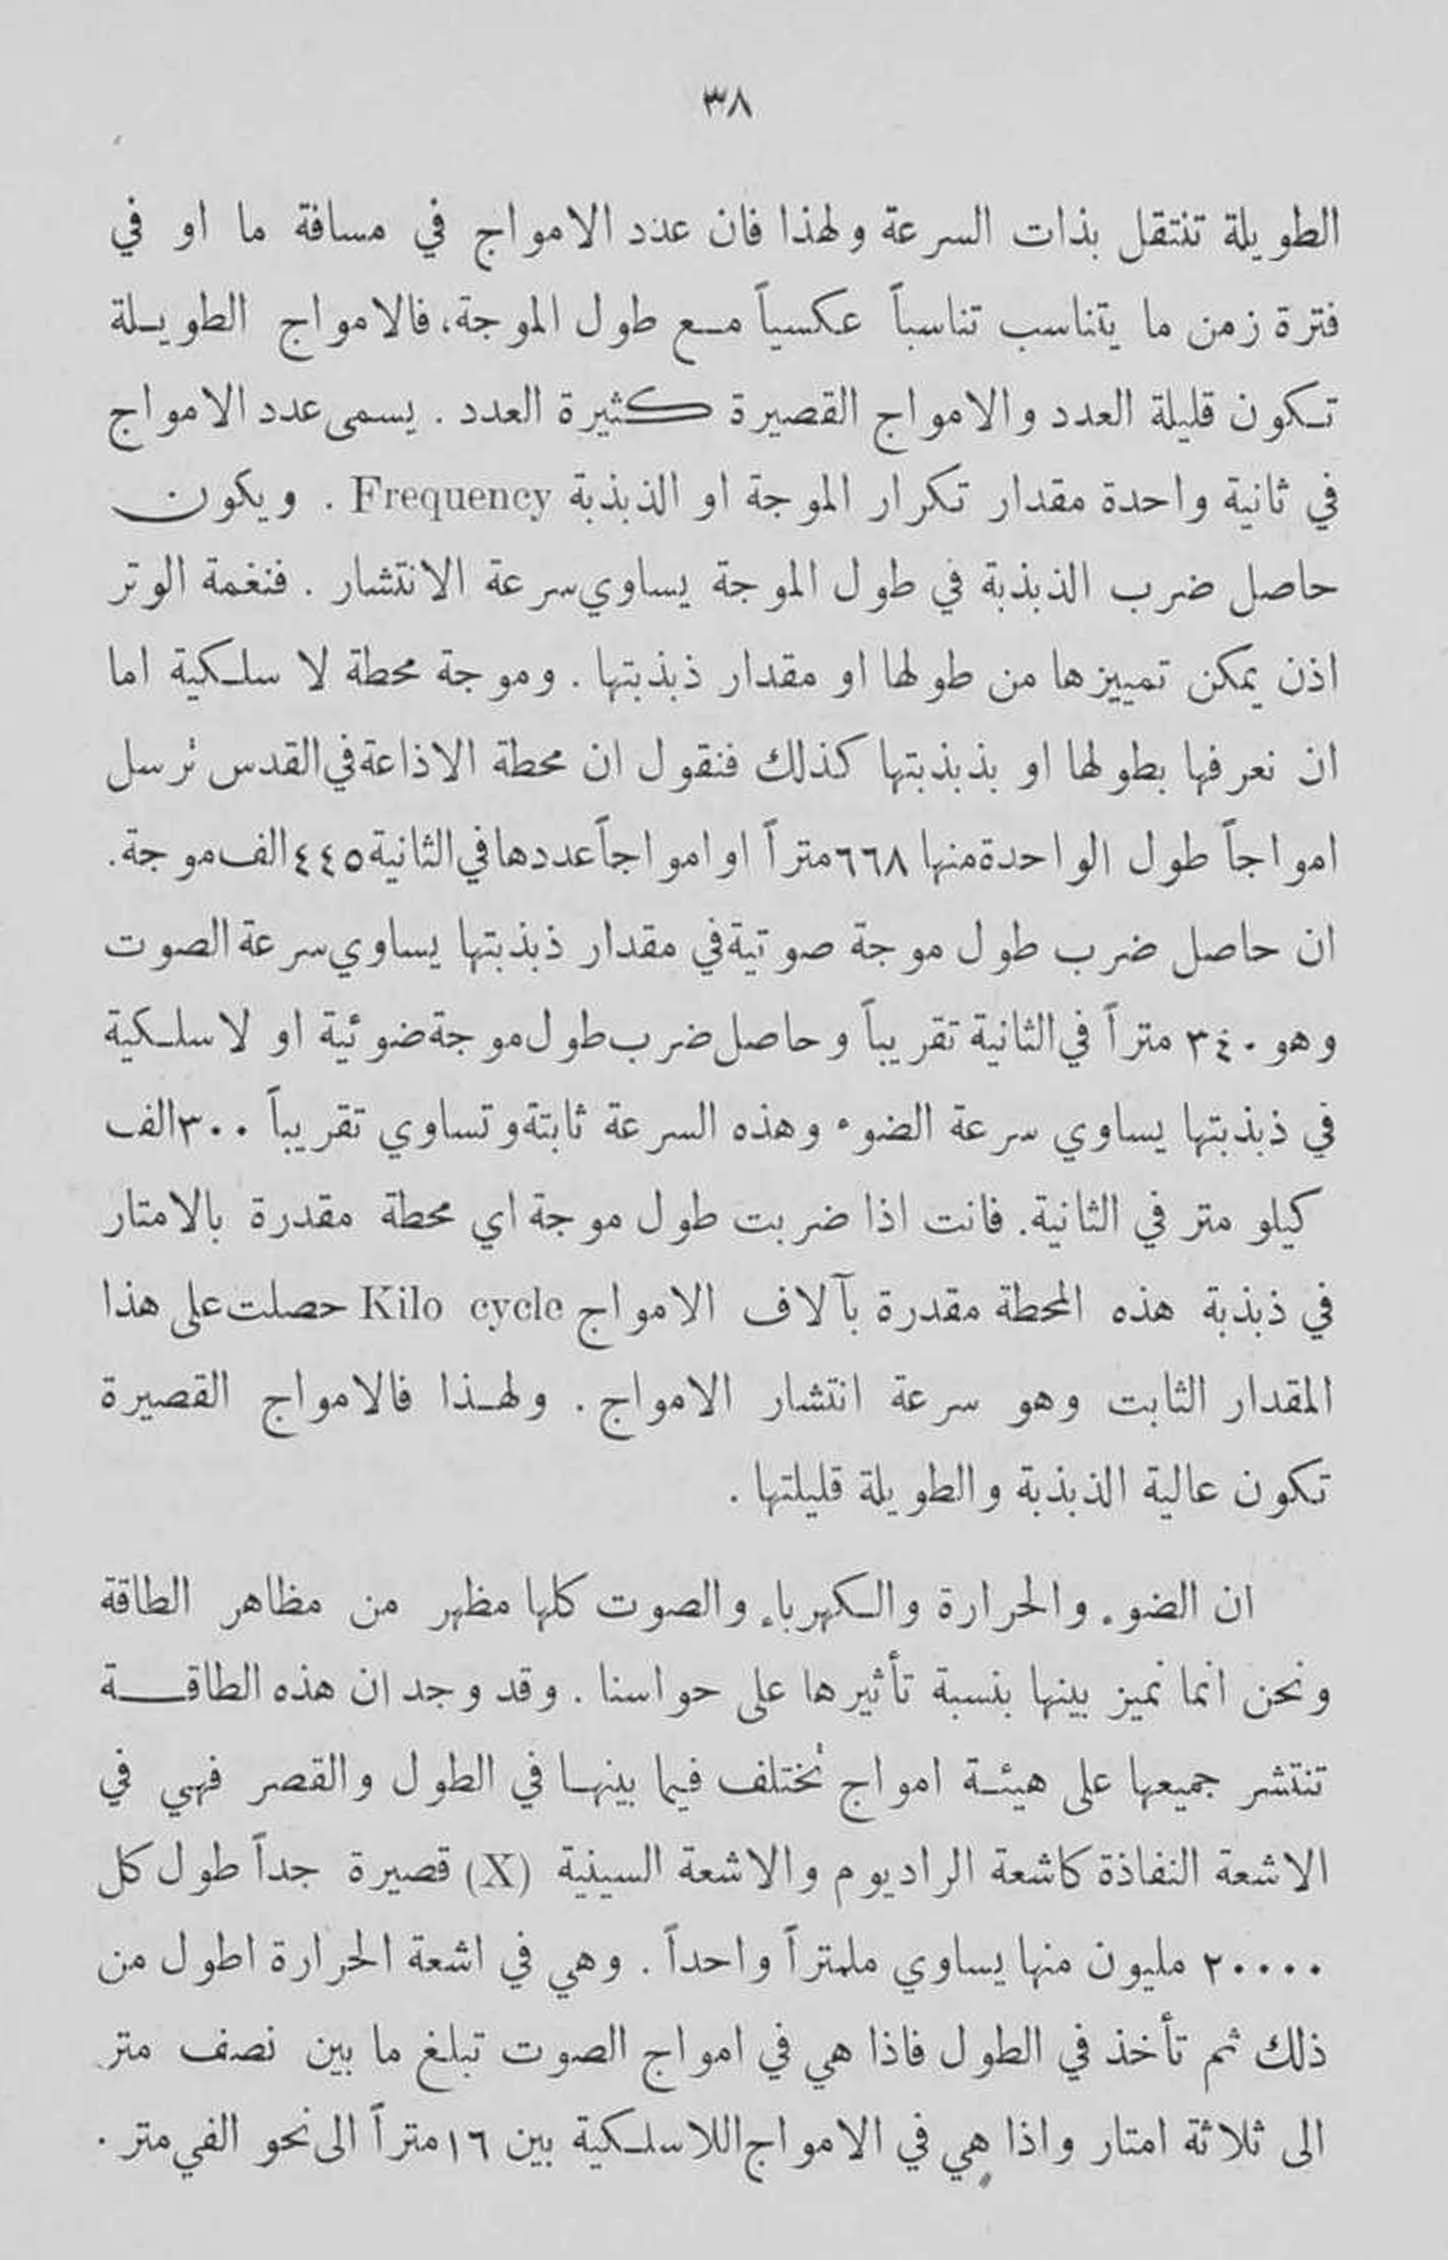 ٣٨
الطويلة تنتقل بذات السرعة ولهذا فان عدد الامواج في مسافة ما او في
فترة زمن ما يتناسب تناسباً عكسياً مع طول الموجة، فالامواج الطويلة
تكون قليلة العدد والامواج القصيرة كثيرة العدد . يسمى عدد الامواج
في ثانية واحدة مقدار تكرار الموجة او الذبذبة Frequency . ويكون
حاصل ضرب الذبذبة في طول الموجة يساوي سرعة الانتشار . فنغمة الوتر
اذن يمكن تمييزها من طولها او مقدار ذبذبتها . وموجة محطة لا سلكية اما
ان نعرفها بطولها او بذبذبتها كذلك فنقول ان محطة الاذاعة في القدس ترسل
امواجاً طول الواحدة منها ٦٦٨ متراً او امواجاً عددها في الثانية ٤٤٥ الف موجة.
ان حاصل ضرب طول موجة صوتية في مقدار ذبذبتها يساوي سرعة الصوت
وهو ٣٤٠ متراً في الثانية تقريباً وحاصل ضرب طول موجة ضوئية او لاسلكية
في ذبذبتها يساوي سرعة الضوء وهذه السرعة ثابتة وتساوي تقريباً ٣٠٠ الف
كيلو متر في الثانية. فانت اذا ضربت طول موجة اي محطة مقدرة بالامتار
في ذبذبة هذه المحطة مقدرة بآلاف الامواج Kilo cycle حصلت على هذا
المقدار الثابت وهو سرعة انتشار الامواج . ولهذا فالامواج القصيرة
تكون عالية الذبذبة والطويلة قليلتها .
ان الضوء والحرارة والكهرباء والصوت كلها مظهر من مظاهر الطاقة
ونحن انما نميز بينها بنسبة تأثيرها على حواسنا . وقد وجد ان هذه الطاقة
تنتشر جميعها على هيئة امواج تختلف فيما بينها في الطول والقصر فهي في
الاشعة النفاذة كاشعة الراديوم والاشعة السينية (X) قصيرة جداً طول كل
٢٠٠٠٠ مليون منها يساوي ملمتراً واحداً . وهي في اشعة الحرارة اطول من
ذلك ثم تأخذ في الطول فاذا هي في امواج الصوت تبلغ ما بين نصف متر
الى ثلاثة امتار واذا هي في الامواج اللاسلكية بين ١٦ متراً الى نحو الفي متر .